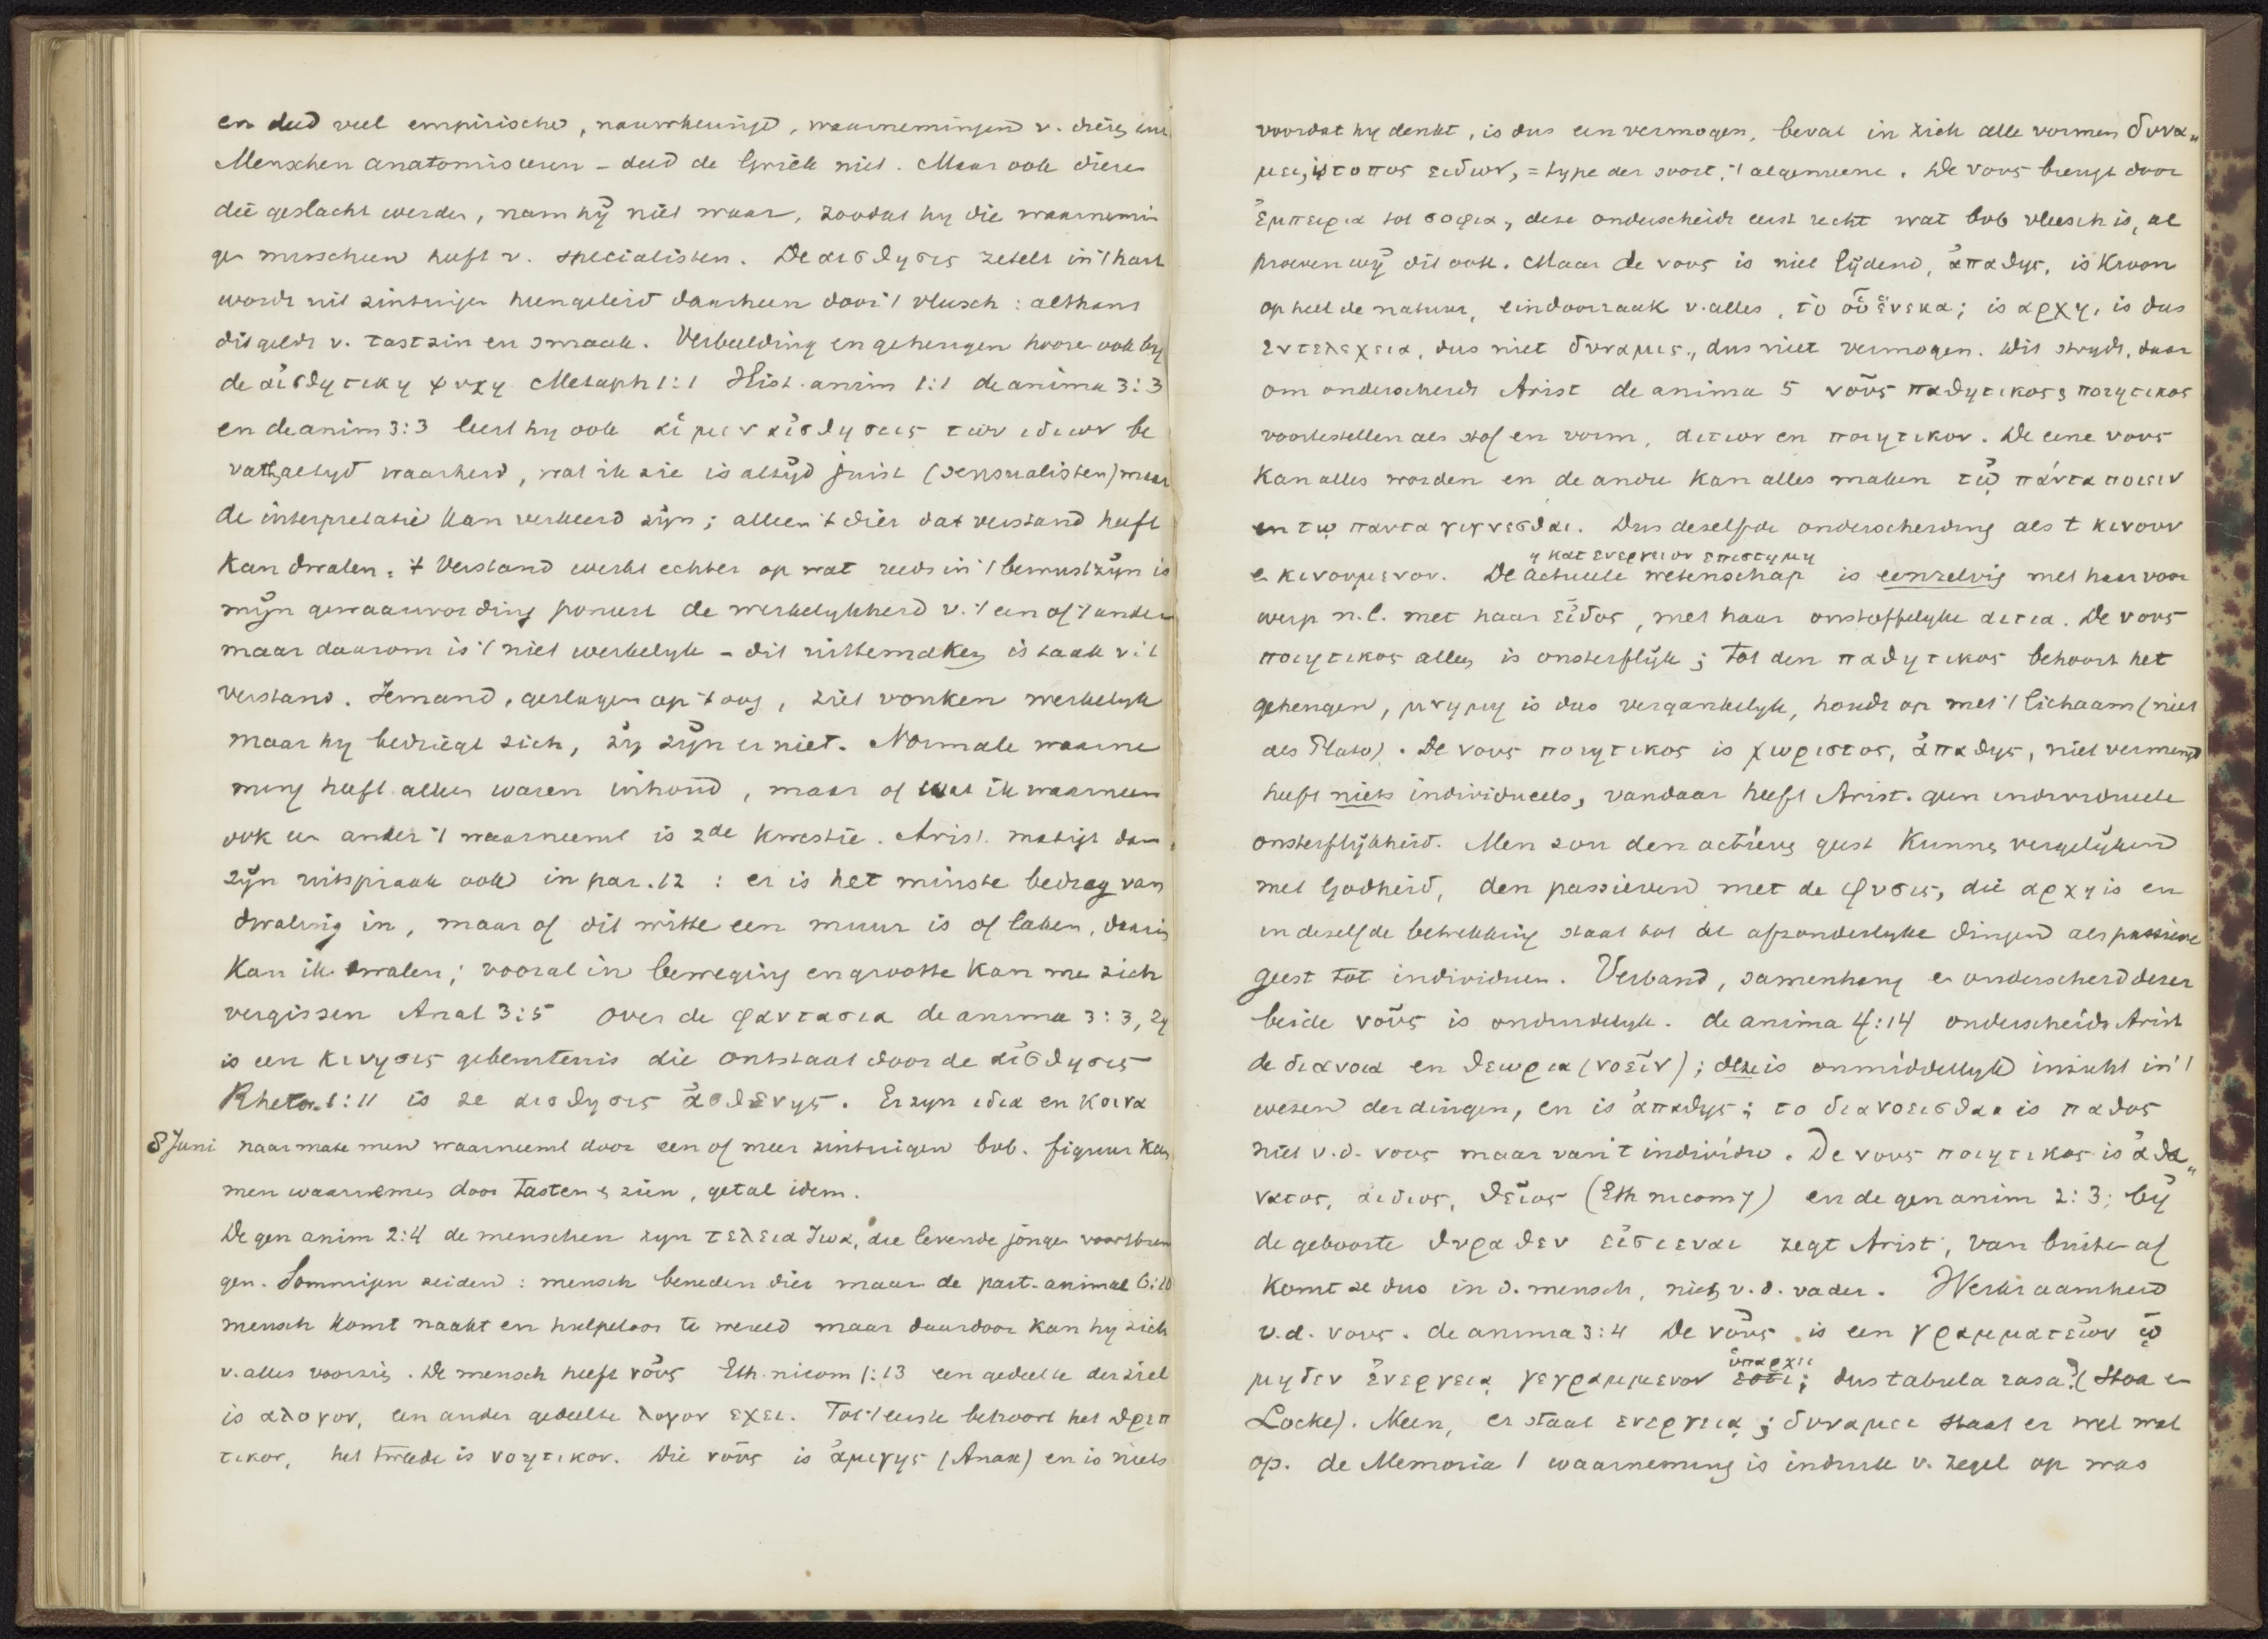 en deed veel empirische, nauwkeurige, waarnemingen v. dieren enz.
Menschen anatomiseeren – deed de Griek niet. Maar ook dieren
die geslacht werden, nam hij niet waar, zoodat hy die waarnemin
gen misschien heeft v. specialisten. De αισθησις zetelt in 't hart
wordt uit zintuigen heengeleid daarheen door 't vleesch: althans
dit geldt v. tastzin en smaak. Verbeelding en geheugen hooren ook by
de αἰσθητικη ψυχη Metaph 1:1 Hist. anim 1:1 de anima 3:3
en de anim 3:3 leert hy ook αἱ μεν αἰσθησεις των ιδιων be
vatten altyd waarheid, wat ik zie is altyd juist (sensualisten) maar
de interpretatie kan verkeerd zijn; alleen 't dier dat verstand heeft
kan dwalen. 't Verstand werkt echter op wat reeds in 't bewustzijn is
mijn gewaarwording poneert de werkelykheid v. 't een of 't ander
maar daarom is 't niet werkelyk – dit uittemaken is taak v. 't
verstand. Iemand, geslagen op 't oog, ziet vonken werkelyk
maar hy bedriegt zich, zij zijn er niet. Normale waarne
ming heeft alleen waren inhoud, maar of wat ik waarneem
ook een ander 't waarneemt is 2de kwestie. Arist. matigt dan
zijn uitspraak ook in par. 12: er is het minste bedrag van
dwaling in, maar of dit witte een muur is of laken, daarin
kan ik dwalen; vooral in beweging en grootte kan men zich
vergissen Anal 3:5 over de φαντασια de anima 3:3, zy
is een κινησις gebeurtenis die ontstaat door de αἰσθησις
Rhetor. 1:11 is ze αισθησις ἀσθενης. Er zyn ιδια en κοινα
8 Juni naarmate men waarneemt door een of meer zintuigen bvb. figuur kan
men waarnemen door tasten & zien, getal idem.
De gen anim 2:4 de menschen zyn τελεια ζωα, die levende jongen voortbren
gen. Sommigen zeiden: mensch beneden dier maar de part. animal 6:10
mensch komt naakt en hulpeloos te wereld maar daardoor kan hy zich
v. alles voorzien. De mensch heeft νοῦς Eth. nicom 1:13 een gedeelte der ziel
is αλογον, een ander gedeelte λογον εχει. Tot 't eerste behoort het θρεπ
τικον, het tweede is νοητικον. Die νοῦς is ἀμιγης (Anax) en is niets
voordat hy denkt, is dus een vermogen, bevat in zich alle vormen δυνα„
μει, is τοπος ειδων, = type der soort, 't algemeene. De νους brengt door
ἐμπειρια tot σοφια, deze onderscheidt eerst recht wat bvb vleesch is, al
proeven wij dit ook. Maar de νους is niet lijdend, ἀπαθης, is kroon
op heel de natuur, eindoorzaak v. alles, τὸ οὗ ἕνεκα; is αρχη, is dus
εντελεχεια, dus niet δυναμις, dus niet vermogen. Dit strydt, daar
om onderscheidt Arist de anima 5 νοῦς παθητικος & ποιητικος
voortestellen als stof en vorm, αιτιον en ποιητικον. De eene νους
kan alles worden en de andre kan alles maken τῷ πάντα ποιειν
en τῳ παντα γιγνεσθαι. Dus dezelfde onderscheiding als t κινουν
η κατ ενεργειαν επιστημη
en κινουμενον. De actueele wetenschap is eenzelvig met haar voor
werp n.l. met haar εἶδος, met haar onstoffelyke αιτια. De νους
ποιητικος alleen is onsterflijk; tot den παθητικος behoort het
geheugen, μνημη is dus vergankelyk, houdt op met 't lichaam (niet
als Plato). De νους ποιητικος is χωριστος, ἀπαθης, niet vermengd
heeft niets individueels, vandaar heeft Arist. geen individueele
onsterflijkheid. Men zou den actieven geest kunnen vergelijken
met Godheid, den passieven met de φυσις, die αρχη is en
in dezelfde betrekking staat tot de afzonderlyke dingen als passieve
geest tot individuen. Verband, samenhang en onderscheid dezer
beide νοῦς is onduidelyk. de anima 4:14 onderscheidt Arist
de διανοια en θεωρια (νοεῖν); deze is onmiddellyk inzicht in 't
wezen der dingen, en is ἀπαθης; το διανοεισθαι is παθος
niet v.d. νους maar van 't individu. De νους ποιητικος is ἀθα„
νατος, αιδιος, θεῖος (Eth nicom 7) en de gen anim 2:3; bij
de geboorte θυραθεν εἰσιεναι zegt Arist, van buiten af
komt ze dus in d. mensch, niet v.d. vader. Werkzaamheid
v.d. νους. de anima 3:4 De νοῦς is een γραμματεῖον ᾧ
ὑπαρχει
μηδεν ἐνεργεια γεγραμμενον εστι; dus tabula rasa? (Stoa en
Locke). Neen, er staat ενεργειᾳ; δυναμει staat er wel wat
op. de Memoria 1 waarneming is indruk v. zegel op was